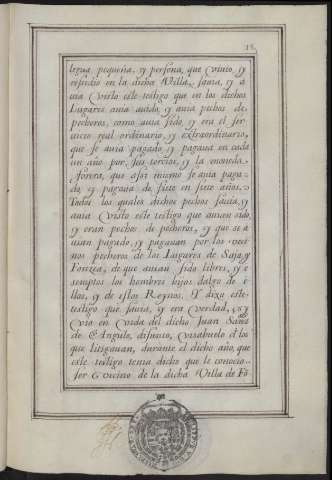 legua pequeña, y persona, que viuio, y
residio en la dicha Villa, sauia, y a
uia visto este testigo que en los dichos
Lugares auia auido, y auia pechos de
pecheros, como auia sido, y era el ser
uicio real ordinario, y extraordinario,
que se auia pagado, y pagaua en cada
un año por seis tercios, y la moneda
forera, que assi mismo se auia paga
do, y pagaua de siete en siete años.
Todos los quales dichos pechos sauia, y
auia visto este testigo que auian sido,
y eran pechos de pecheros, y que se a
uian pagado, y pagauan por los veci
nos pecheros de los Lugares de Saja, y
Foniza, de que auian sido libres, y e
semptos los hombres hijos dalgo de e
llos, y de estos Reynos. Y dixo este
testigo que sauia, y era verdad, y
vio en vida del dicho Juan
de Angulo, difunto, visabuelo de los
que litigauan, durante el dicho año, que
este testigo tenia dicho que le conocio
ser vecino de la dicha Villa de